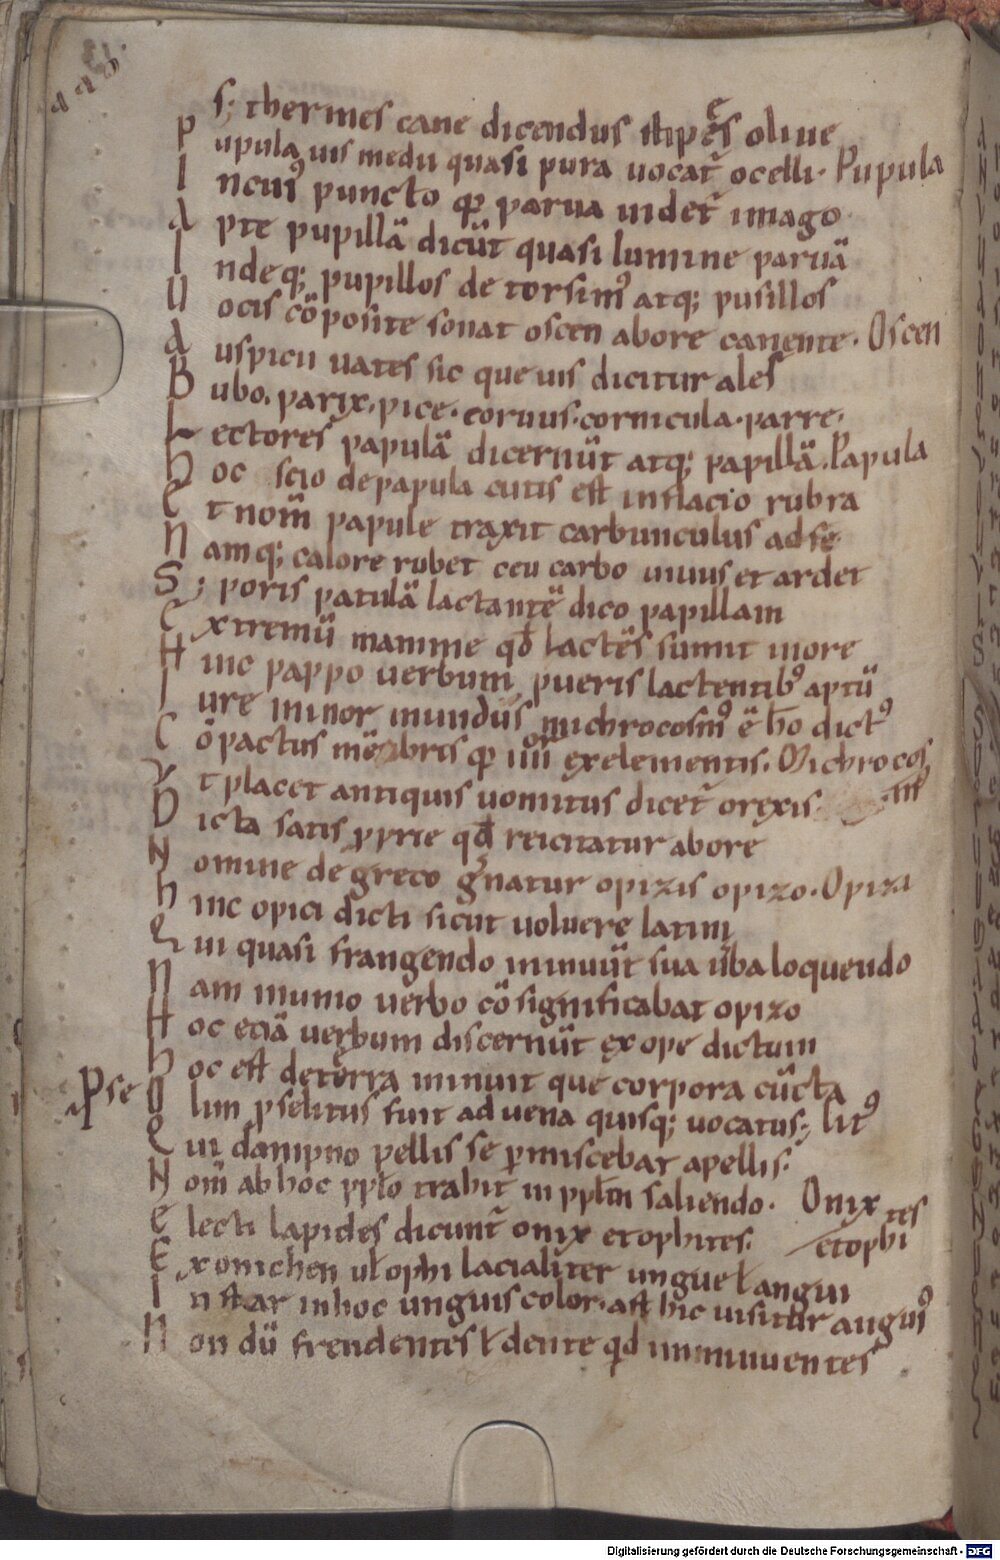 s; thermes cane dicendus stipes oliue
P upula uis medii quasi pura uocat̄ ocelli. Pupula
I ncui9 puncto qp parua uidet̄ imago
A pte pupillā dicūt quasi lumine paruā
I ndeq; pupillos de torsim9 atq; pusillos
U ocis cōposite sonat oscen abore canente. Oscen
A uspicii uates sic que uis dicitur ales
B ubo. parix. pice. coruus. cornicula. parre.
L ectores papulā dicernūt atq; papillā. Papula
H oc scio de papula cutis est inflacio rubra
E t nom̄ papule traxit carbunculus ad se
N amq; calore rubet ceu carbo uiuus et ardet
S; poris patulā lactantē dico papillam
E xtremū mamme qd̄ lactēs sumit in ore
H inc pappo uerbum pueris lactentib9 aptū
I ure minor mundus michrocosm9 ē ho dict9
C ōpactus mēbris qp iiii ex elementis. Michrocos
V t placet antiquis uomitus dicet̄ orexis. m
D icta satis pprie qd̄ reicitatur abore
N omine de greco gnatur opizis opizo. Opizi
H inc opici dicti sicut uoluere latini
Q ui quasi frangendo minuūt sua ūba loquendo
N am minuo uerbo cōsignificabat opizo
H oc eciā uerbum discernūt ex ope dictum
H oc est de terra minuit que corpora cūcta
Pse O lim pselitus fuit aduena quisq; uocatus; lit9
Q ui dampno pellis se pmiscebat apellis.
N om̄ ab hoc ppło trahit in ppłm saliendo. Onix
E lecti lapides dicunt̄ onix et ophites. tes etophi
E x onichen uł ophi lacialiter ungue ł angui
I nstar inhoc unguis color. ast hic uisitur angu9
N on dū frendentes ł dente qid inminuentes